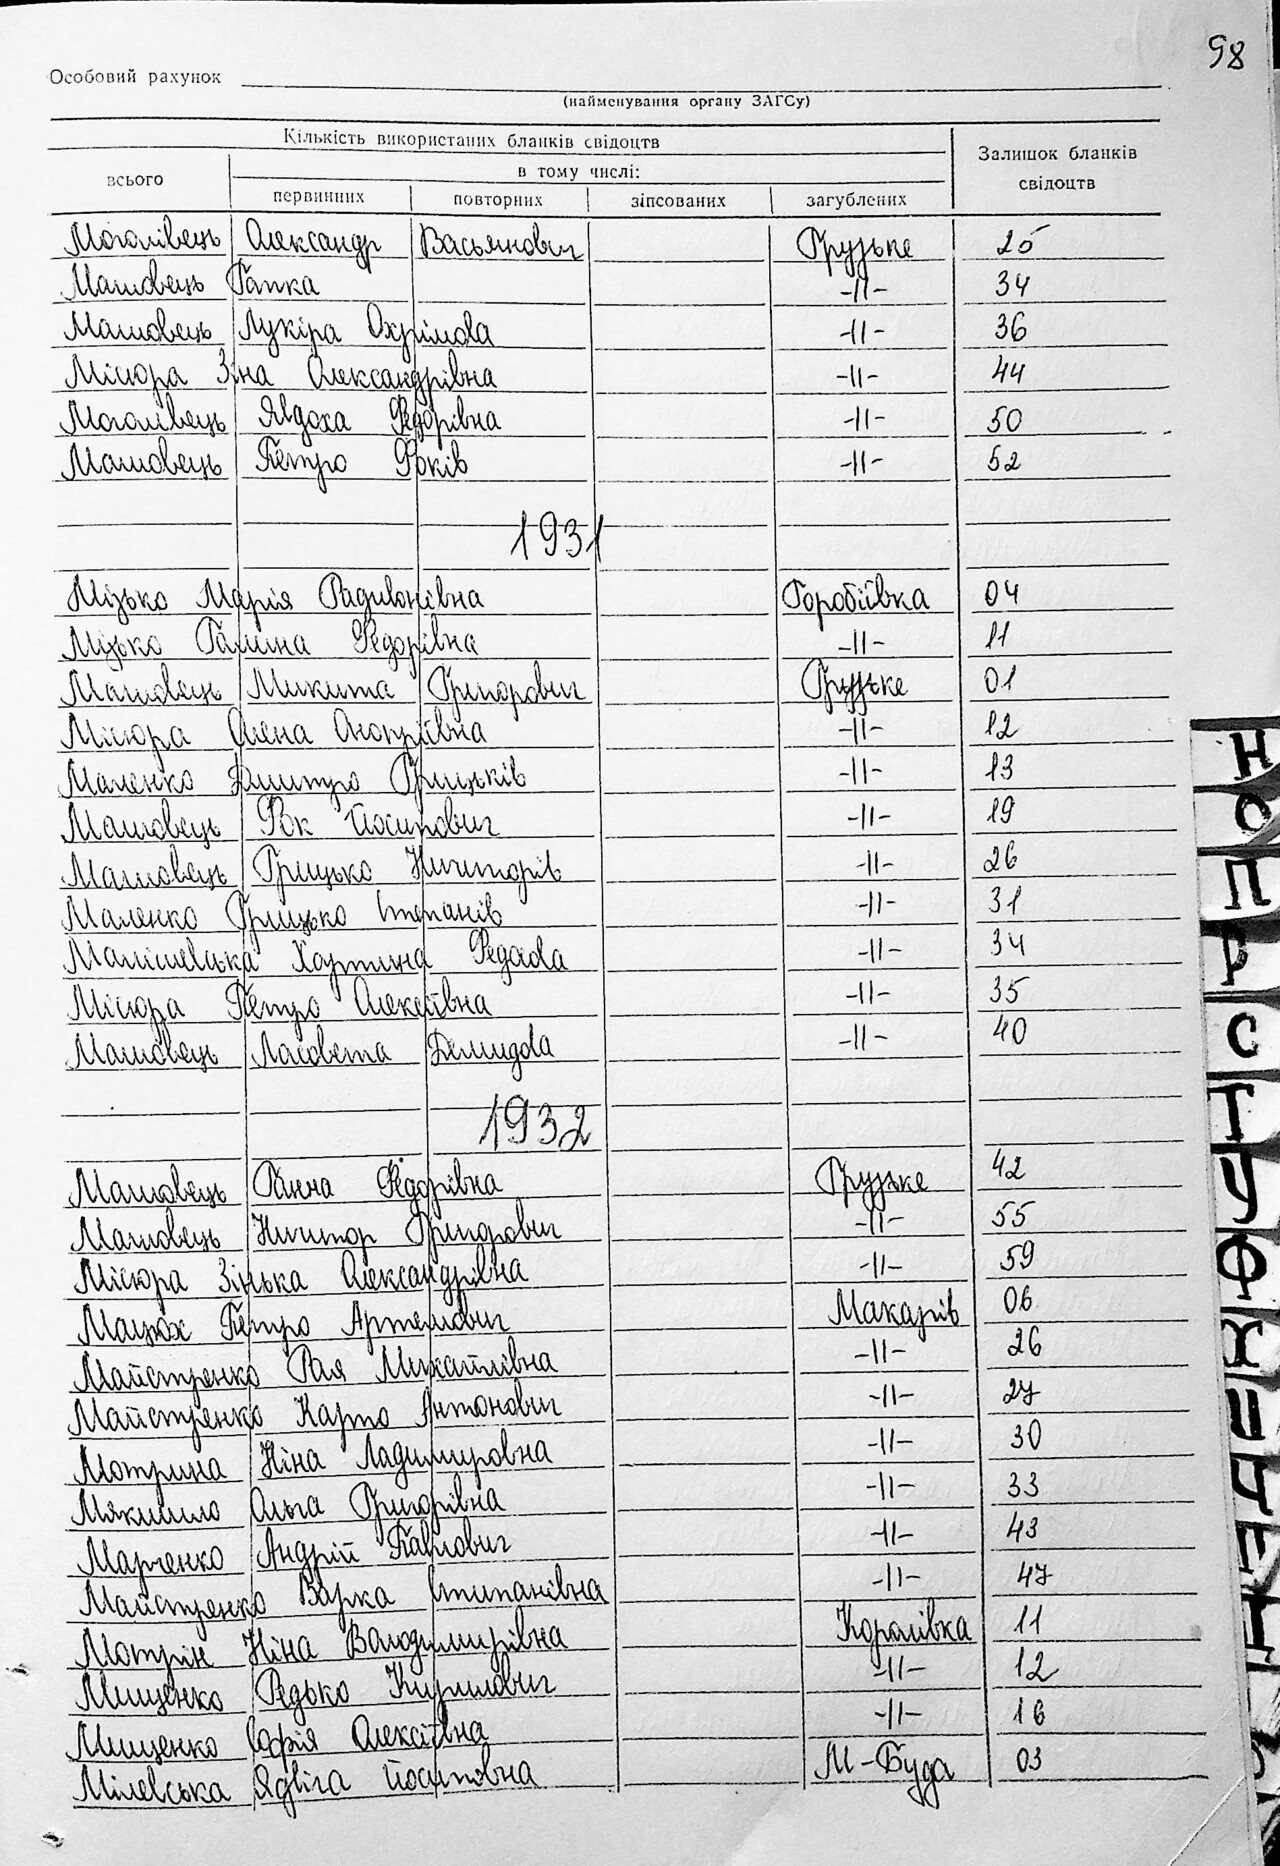 98
Особовий рахунок
(найменування органу ЗАГСу)
Кількість використаних бланків свідоцтв
Залишок бланків свідоцтв
всього
в тому числі:
первинних повторних зіпсованих загублених
Моголівець Олександр Васьянович Грузьке 25
Машовець Гапка -11- 34
Машовець Лукіра Охрімова -11- 36
Місюра Зіна Олександрівна -11- 44
Моголівець Явдоха Федорівна -11- 50
Машовець Петро Фоків -11- 52
1931
Мізько Марія Радивонівна Горобіївка 04
Мізько Галина Федорівна -11- 11
Машовець Микита Григорович Грузьке 01
Місюра Олена Оногріївна -11- 12
Маленко Дмитро Грицьків -11- 13
Машовець Фок Йосипович -11- 19
Машовець Грицько Ничипорів -11- 26
Маленко Грицько Степанів -11- 31
Малішевська Хартина -11- 34
Місюра Петро Олексіївна -11- 35
Машовець Лисовета Демидова -11- 40
1932
Машовець Ганна Федорівна Грузьке 42
Машовець Ничипор Григорович -11- 55
Місюра Зінька Олександрівна -11- 59
Мацюх Петро Артемович Макарів 06
Майстренко Рая Михайлівна -11- 26
Майстренко Карпо Антонович -11- 27
Мотрина Ніна Ладимировна -11- 30
Мякшило Ольга Григорівна -11- 33
Марченко Андрій Павлович -11- 43
Майстренко Варка Стипанівна -11- 47
Мотрин Ніна Володимирівна Королівка 11
Мищенко Федько Кирилович -11- 12
Мищенко Софія Олексіївна -11- 16
Мілевська Ядвіга Йосиповна М-Буда 03
Н
О
П
Р
С
Т
У
Ф
Х